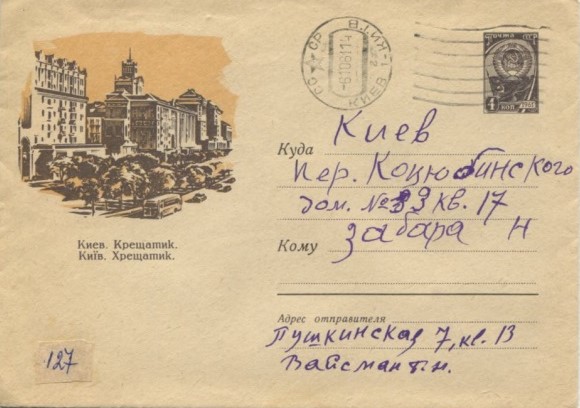 СССР
КИЕВ
ПОЧТА СССР
4
КОП
Киев. Крещатик.
Київ. Хрещатик.
Куда
Киев
пер. Коцюбинского
дом. № кв. 17
Кому
Забара Н
Адрес отправителя
Пушкинская 7, кв. 13
Вайсман т.н.
127